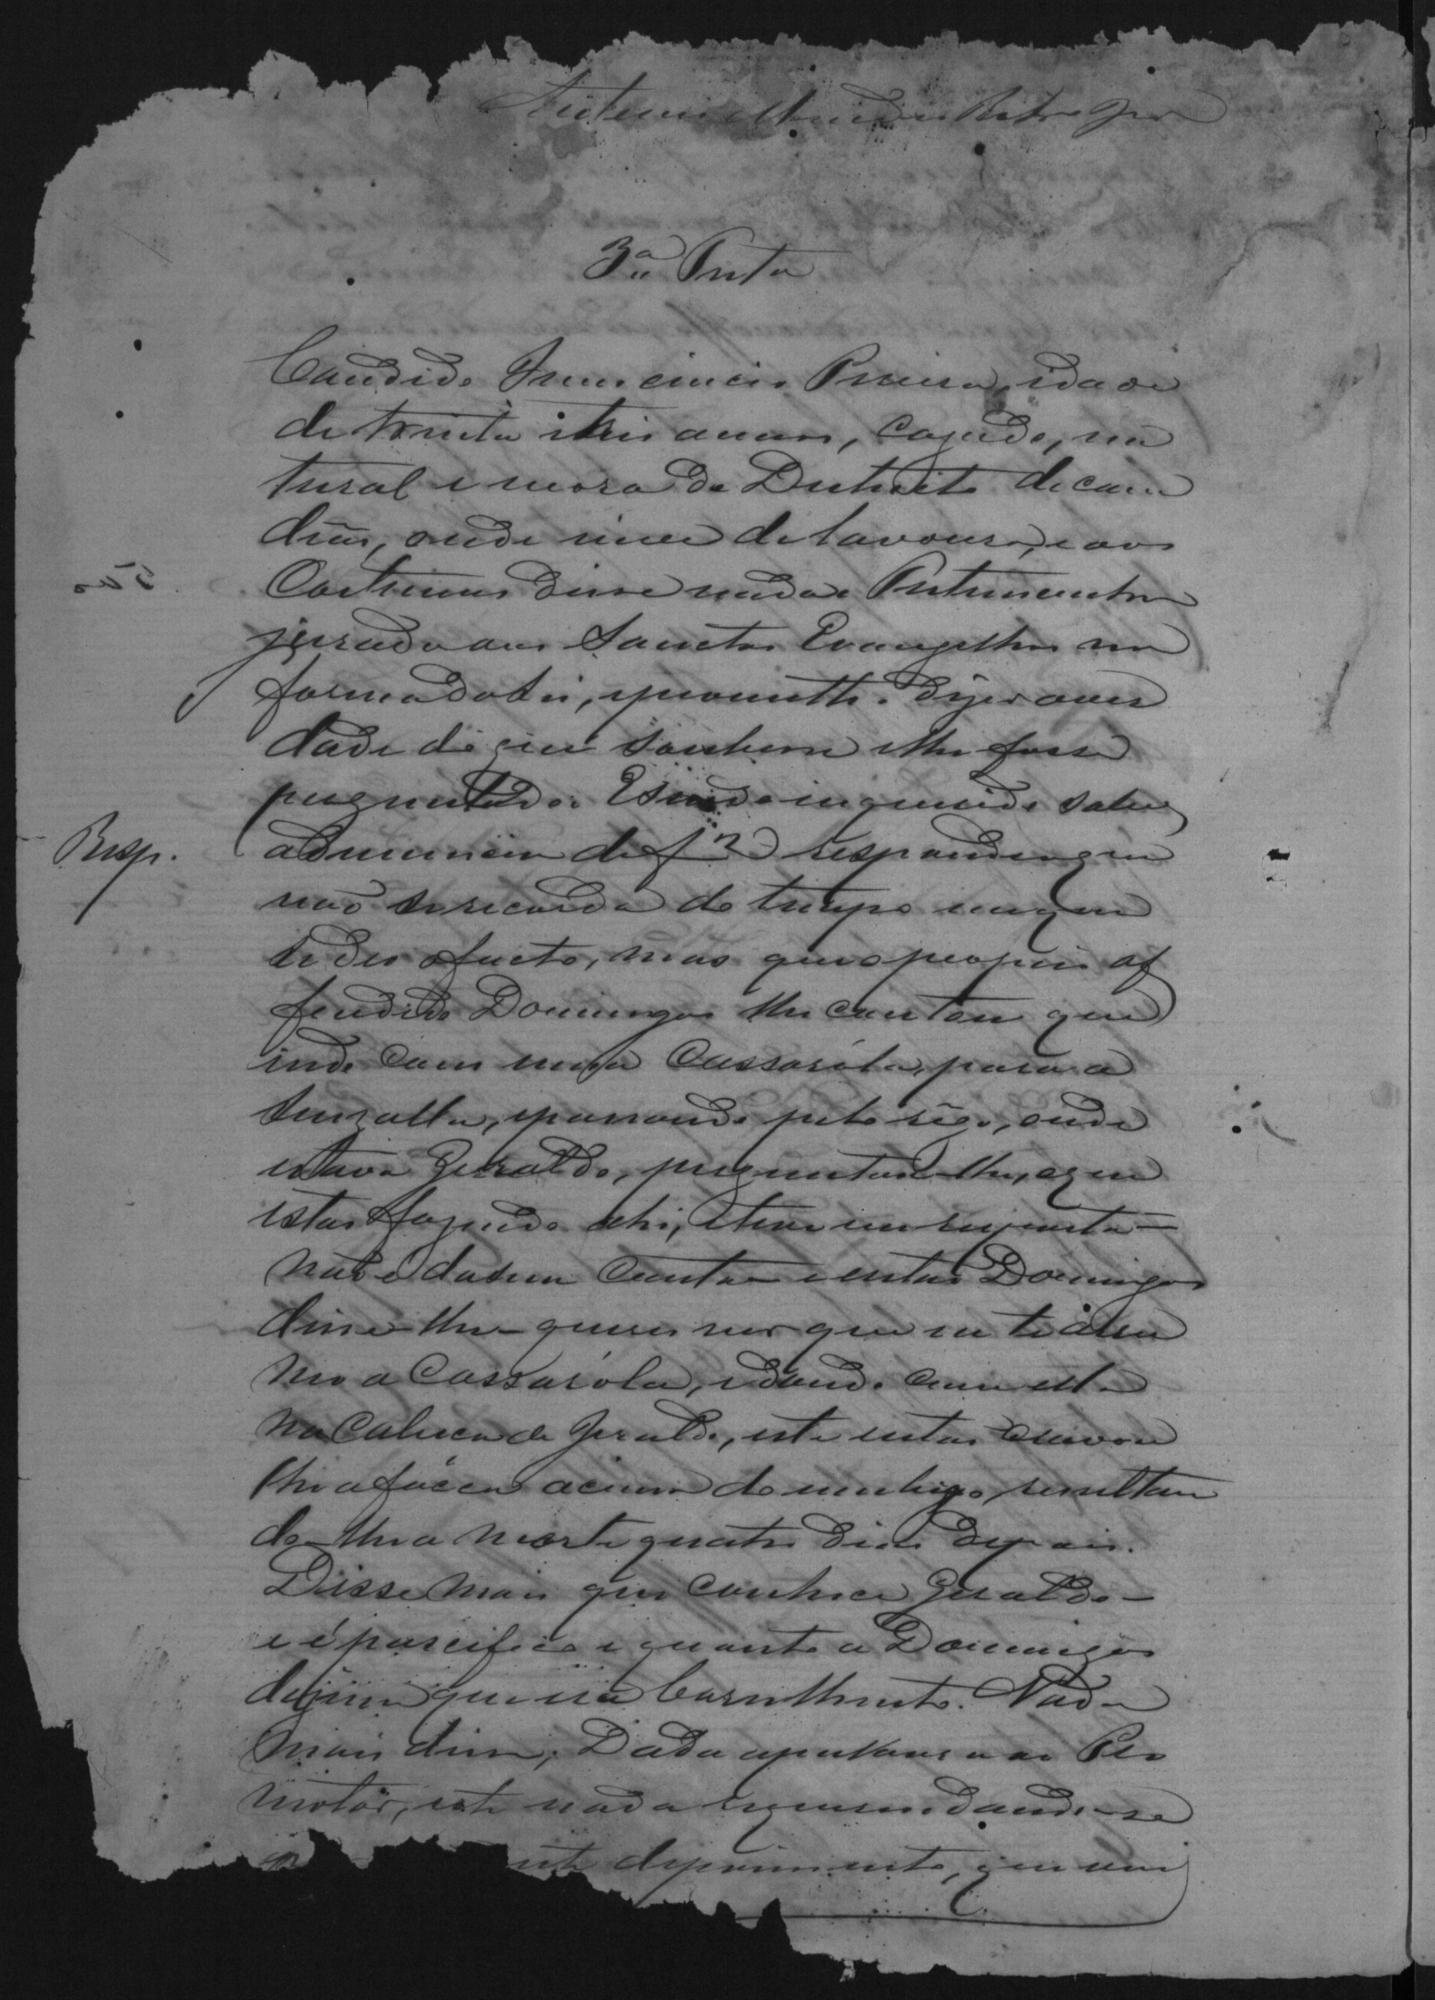 3ª Testa
Candido Innocencio Pereira, idade
de trinta e tres annos, cazado, na
tural e mora do Districto de
dias, onde vive de lavoura, e aos
Costumes disse nada e Testemunha
jurada aos Sanctos Evangelhos na
forma da Lei, e prometteo dizer a ver
dade do que soubesse e lhe fosse
perguntado. E sendo inquirido sobre
Resp. a denuncia de f 2 respondeu que
não se recorda do tempo em que
se deo o facto, mas que o proprio of
fendido Domingos lhe contou que
indo com uma Cassaróla para a
Senzalla, e passando pelo rêgo, onde
estava Geraldo, perguntou-lhe, o que
estas fazendo ahi, e teve em resposta -
não é da sua Conta e então Domingos
disse-lhe - queres ver que eu te
na a Cassaróla, e dando com ella
na Cabeça de Geraldo, este então cravou
lhe a fáca acima do umbigo, resultan
do-lhe a morte quatro dias depois.
Disse mais que conhece Geraldo -
e é pascifico e quanto a Domingos
diziam que era barulhento. Nada
mais disse; Dada a palavra ao Pro
motor, este nada requereu dando-se
este depoimento, que vai